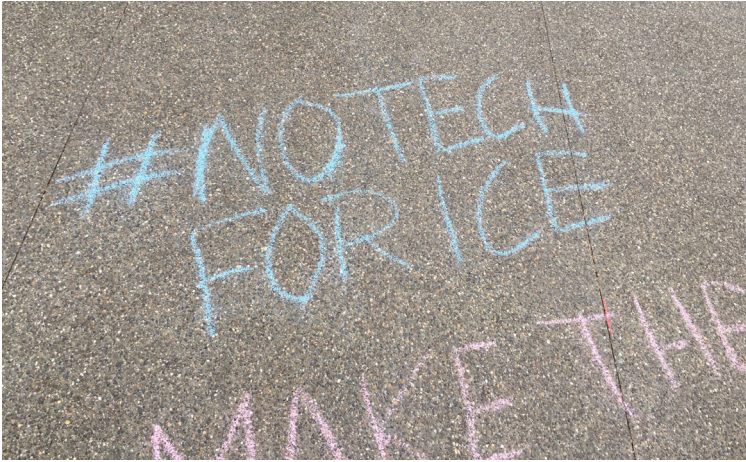 #NOTECH
FOR ICE
MAKE THE